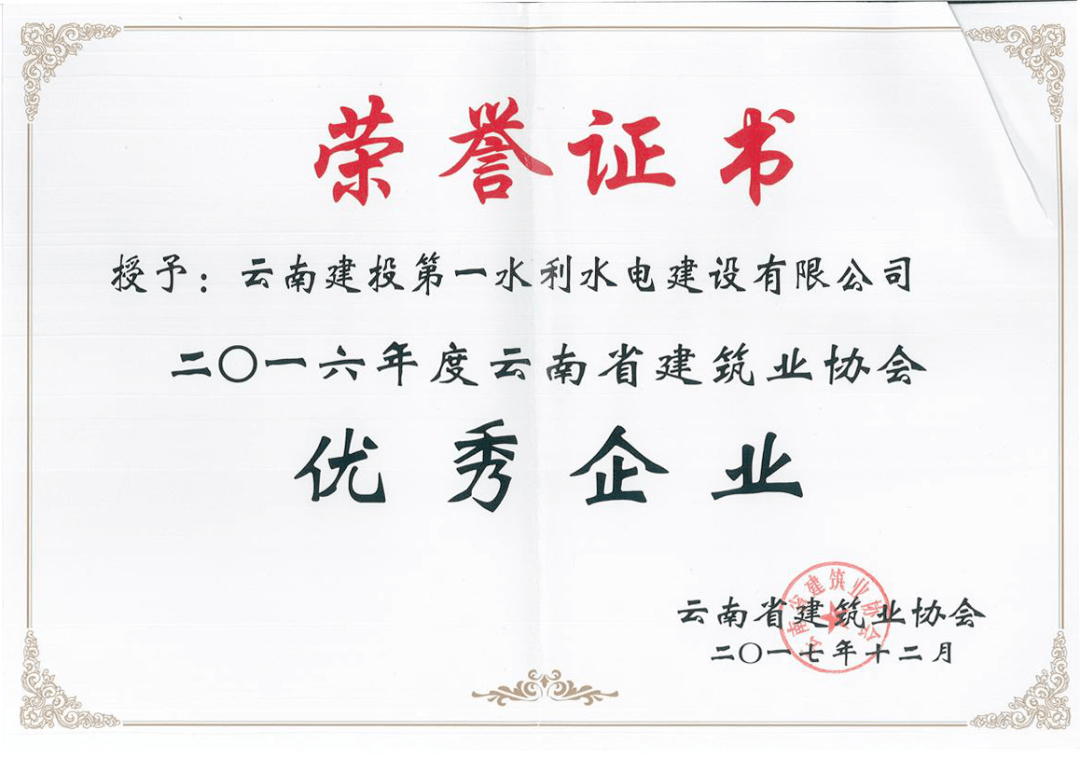 荣誉证书
授予：云南建投第一水利水电建设有限公司
二〇一六年度云南省建筑业协会
优秀企业
云南省建筑业协会
二〇一七年十二月
云南省建筑业协会